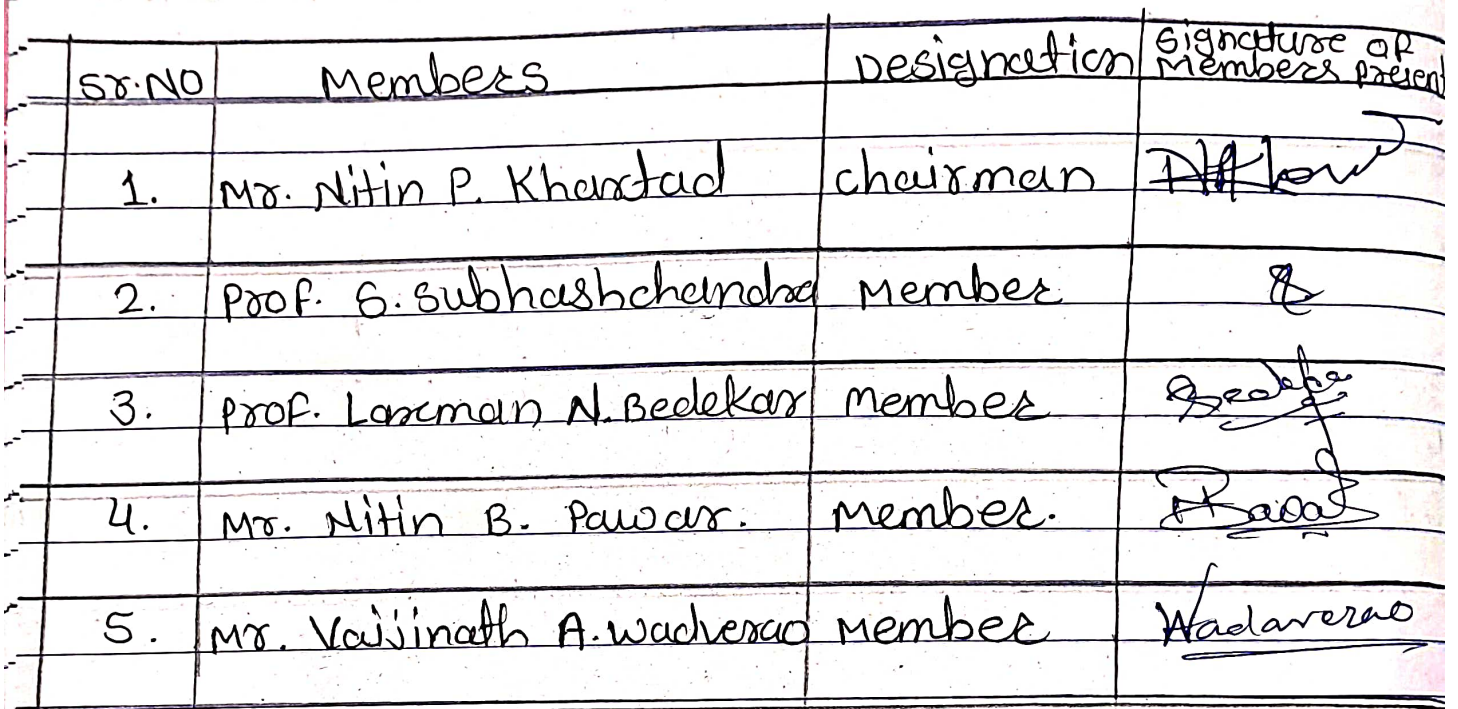 Sr.NO Members Designation Signature of Members Present
1. Mr. Nitin P. Khartad Chairman
2. Prof. S. Subhashchandra Member
3. Prof. Laxman N. Bedekar Member
4. Mr. Nitin B. Pawar. Member.
5. Mr. Vaijinath A. Wadverao Member Wadaverao